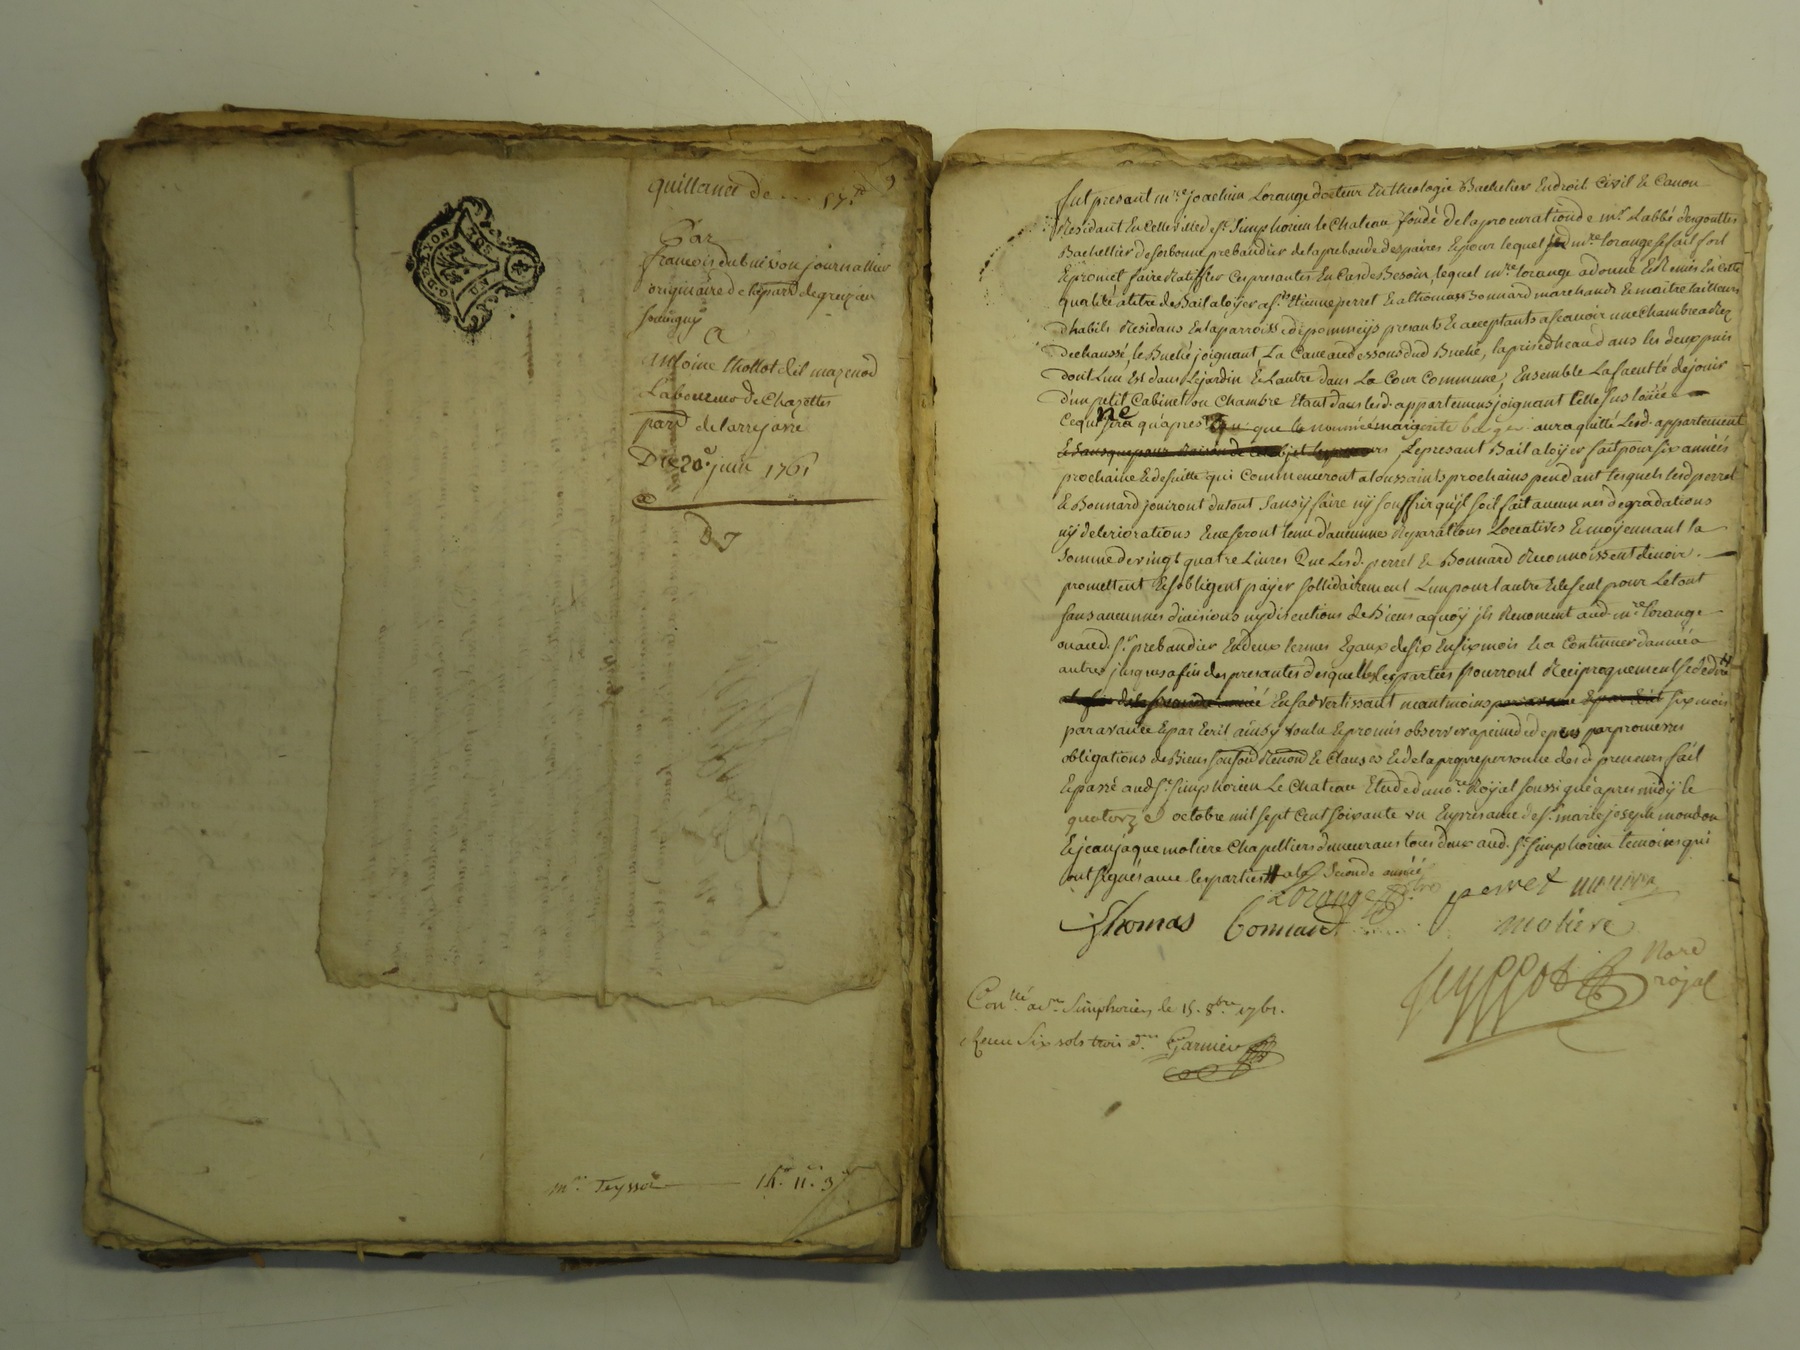 quittance de ... 17.tt
Par
francois dubuisson journallier
originaire de la parr. de grezieu
souvigny
A
antoine thollot dit mazenod
Laboureur de Chazottes
parr. de larrejasse
Du 20e. juin 1761
DJ
G. DE LYON
mre. Teyssot 14. 11. 3
fut present mre. joachim Lorange docteur En theologie Bachelier Endroit Civil & Canon
Residant En cette ville de st. Simphorien le Chateau fondé de la procuration de mr. Labbé desgouttes
Bachellier de sorbonne prebandier de la prebande des paires & pour lequel led mre lorange se fait fort
& promet faire Ratiffier Ces presantes En Cas de Besoin, lequel mre lorange a donné & Remis En cette
qualité a titre de Bail a loÿer a sr. Etienne perret & a thomas Bonnard marchands & maitre tailleurs
dhabits Residans En la parroisse de pommeÿs presants & acceptants a scavoir une Chambre a Rez
de chaussé, le Buché joignant, La Cave au dessous dud Buché, la prise dheau dans les deux puis
dont Lun Est dans Lejardin & Lautre dans La Cour Commune, Ensemble La faculté de jouir
d'un petit Cabinet ou Chambre Etant dans lesd. appartemens joignant Celle sus louée
Ce qui ne sera qu'apres que la nommée margerite aura quitté Lesd. appartement
Le presant Bail a loÿer fait pour six années
prochaine & de suitte qui Commenceront a toussaints prochains pendant lesquels lesd perret
& Bonnard jouiront du tout sans ÿ faire nÿ souffrir qu'il soit fait aucunnes degradations
nÿ deteriorations & ne seront tenu d'aucunnes Reparations Loccatives & moÿennant la
somme de vingt quatre Livres Que Lesd. perret & Bonnard Reconnoissent devoir.
promettent & s'obligent paÿer sollidairement Lun pour lautre & le seul pour Le tout
sans aucunnes divisions nÿ discutions de Biens a quoÿ ils Renoncent aud. mre lorange
ou aud. sr. prebandier En deux termes Egaux de six En six mois & a Continuer dannée a
autres jusques a fin des presantes desquelles les parties pourront Reciproquement se dedire #
En sadvertissant neantmoins six mois
par avance & par Ecrit ainsÿ voulu & promis observer a peine de depens par promesses
obligations de Biens Renond & Clauses & de la propre personne desd preneurs fait
& passé aud st. Simphorien Le Chateau Etude du nore. Roÿal soussigné apres midÿ le
quatorze octobre mil sept Cent soixante un En presance de sr. marie joseph mondon
& jean jaque moliere Chapelliers demeurans tous deux aud. st. Simphorien temoins qui
ont signés avec les parties # a la Seconde année
Lorange perret mondon
Thomas Bonnard moliere
Teyssot Nore
roÿal
Conllé. a st. Simphorien le 15. 8bre. 1761.
Receu six sols trois drs. Garnier